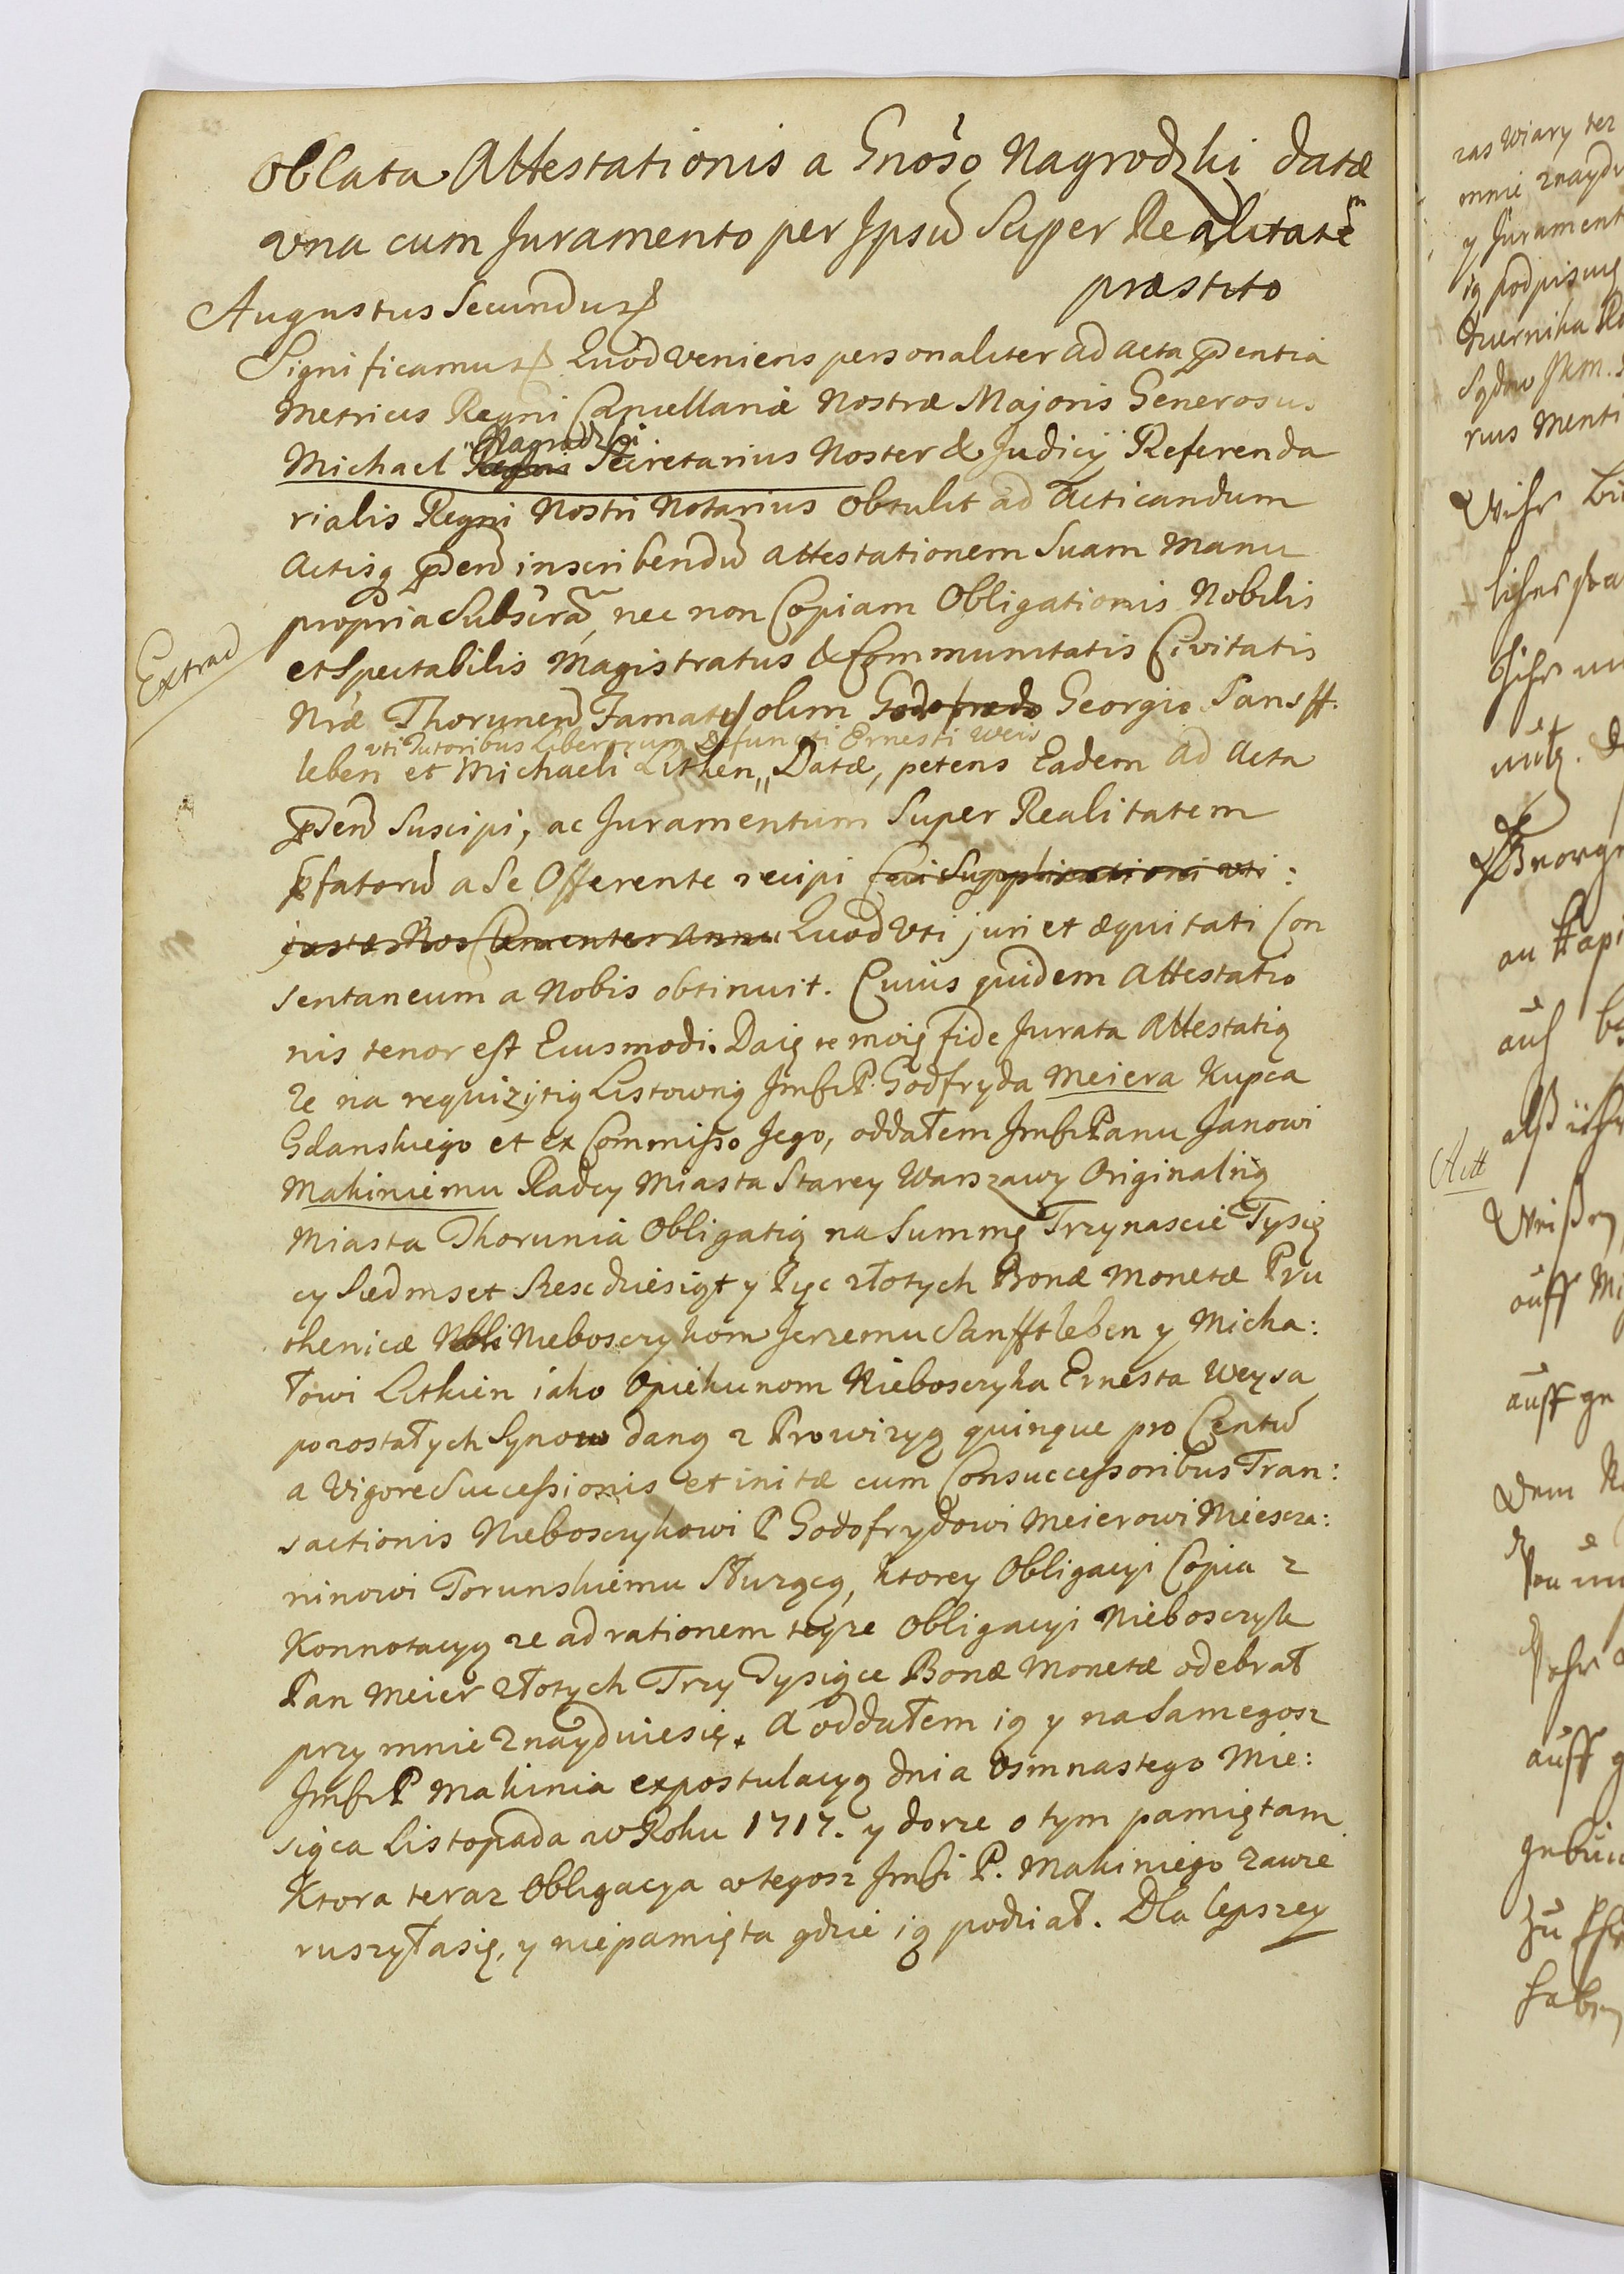 Oblata Attestationis a Gnoso Nagrodzki datæ
vna cum Juramento per Jpsũ Super Realitatẽ
præstito
Augustus Secundus
Significamus Quod veniens personaliter ad acta pñentia
Metrices Regni Cancellariæ Nostræ Majoris Generosus
Michael Nagrodzki Secretarius Noster & Judicÿ Referenda
rialis Regni Nostri Notarius obtulit ad acticandum
Actisq pñen inscribendũ attestationem Suam manu
propria Subscrã, nec non Copiam Obligationis Nobilis
Extrad
et Spectabilis Magistratus & Communitatis Civitatis
Nræ Thorunen Famatis olim Godofredo Georgio Sanfft.
vti Tutoribus liberorum Defuncti Ernesti Weis
leben et Michaeli Lithen,, Datæ, petens Eadem ad Acta
pñen Suscipi, ac Juramentum Super Realitatem
pfatorũ a Se Offerente recipi Cui Supplicationi vti :
justæ Nos Clementer annu Quod Vti juri et æquitati Con
sentaneum a Nobis obtinuit. Cuius quidem Attestatio
nis tenor est Eiusmodi. Daię te moię fide Jurata Attestatią
że na requizÿtią Listowną JmśćP. Godfryda Meiera Kupca
Gdanskiego et ex Commisso Jego, oddałem Jmść Panu Janowi
Makiniemu Radcy Miasta Starey Warszawy Originalną
Miasta Thorunia Obligatią na Summę Trzynascie Tysię
cy Siedmset Szescdziesiąt y Pięc złotych Bonæ Monetæ Pru
thenicæ Nbli Nieboszczykom Jerzemu Sanfftleben y Micha:
łowi Litkien iako Opiekunom Nieboszczyka Ernesta Weysa
pozostałych Synow daną z Prowizyą quinque pro Centũ
a Vigore Successionis et initæ cum Consuccessoribus Tran:
sactionis Nieboszczykowi P Godofrydowi Meierowi Miescza:
ninowi Torunskiemu Służącą, ktorey Obligacyi Copia z
Konnotacyą że ad rationem teyże Obligacyi Nieboszczyk
Pan Meier złotych Trzy Tysiące Bonæ Monetæ odebrał
przy mnie Znayduiesię. A oddałem ią y na Samegosz
Jmść P Makinia expostulacyą dnia Osmnastego Mie:
siąca Listopada w Roku 1717. y dorze o tym pamiętam
Ktora teraz Obligacya w tegosz Jmści P. Makiniego zawie
ruszyłasię, y niepamięta gdzie ią podział. Dla lepszey